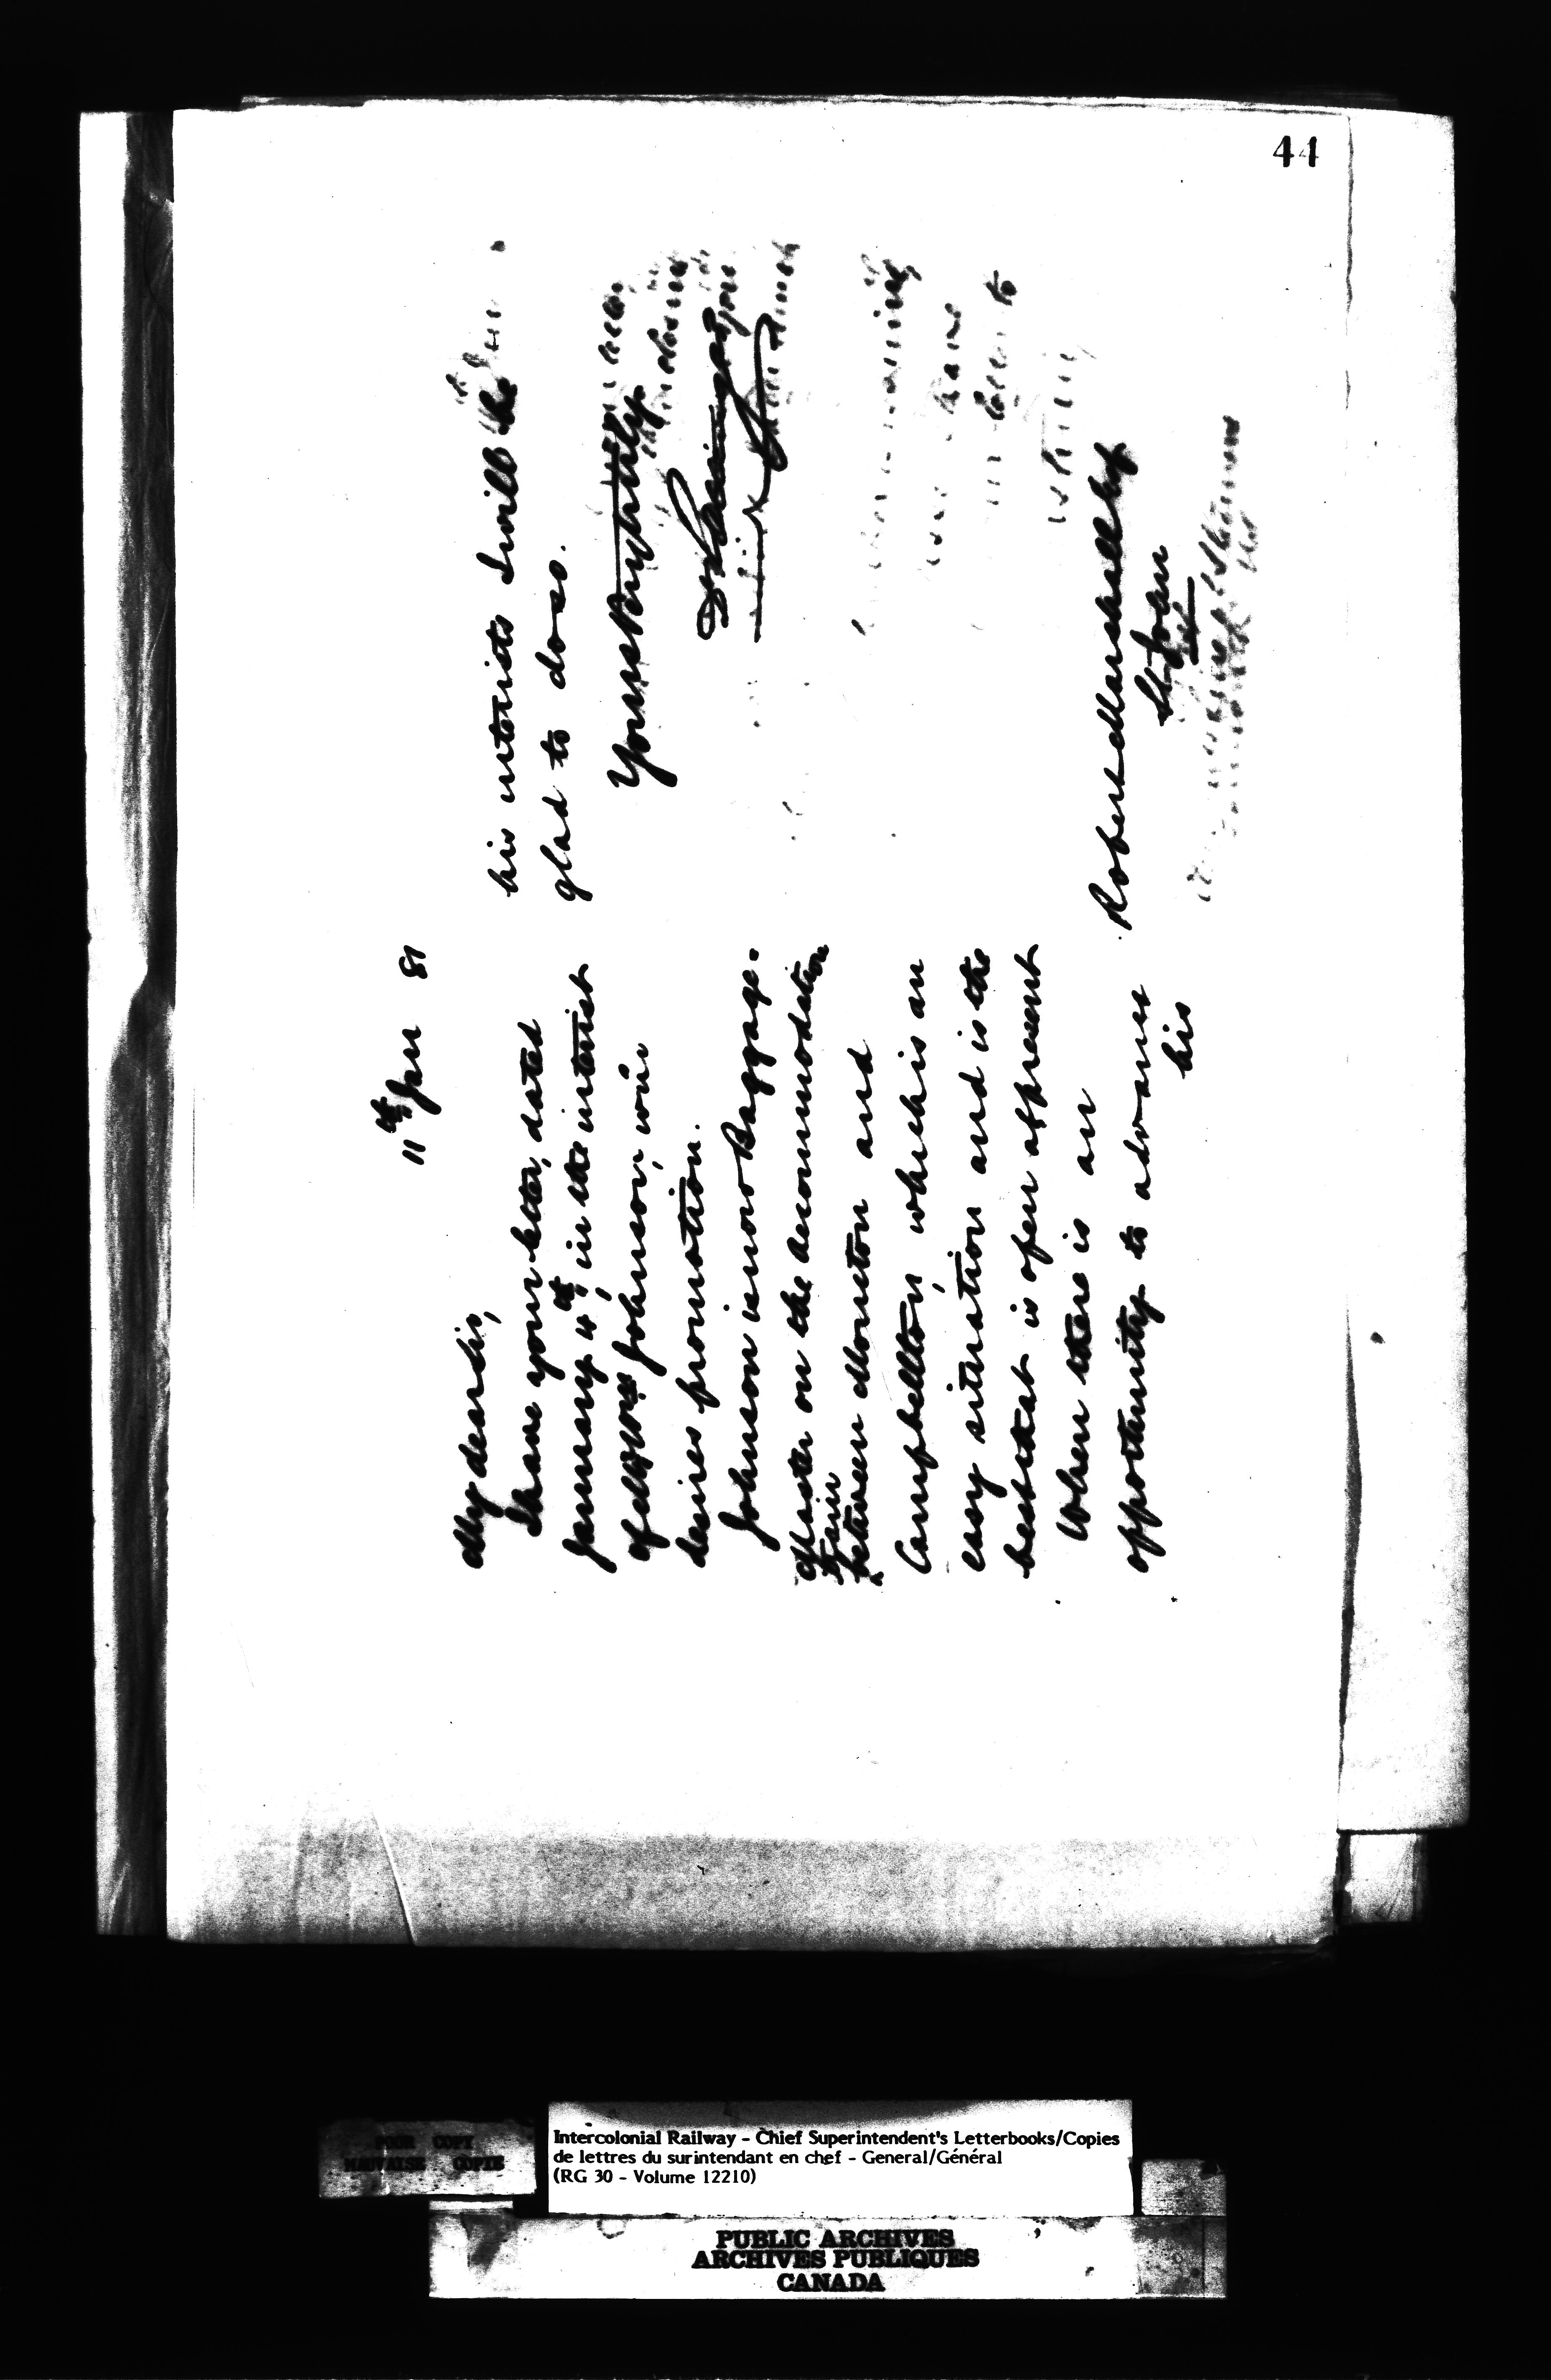 44
11th Jan 81
My dear Sir,
I have your letter, dated
January 4th, in the interest
of Johnson, who
desires promotion.
Johnson is now Baggage-
Master on the Accommodation
Train
between Moncton and
Campbellton, which is an
easy situation and is the
best that is open at present
When there is an
opportunity to advance
his
his interests I will be
glad to do so.
Yours very truly
Robert Marshall Esq
St John
NB
POOR COPY
MAUVAISE COPIE
Intercolonial Railway - Chief Superintendent's Letterbooks/Copies
de lettres du surintendant en chef - General/Général
(RG 30 - Volume 12210)
PUBLIC ARCHIVES
ARCHIVES PUBLIQUES
CANADA